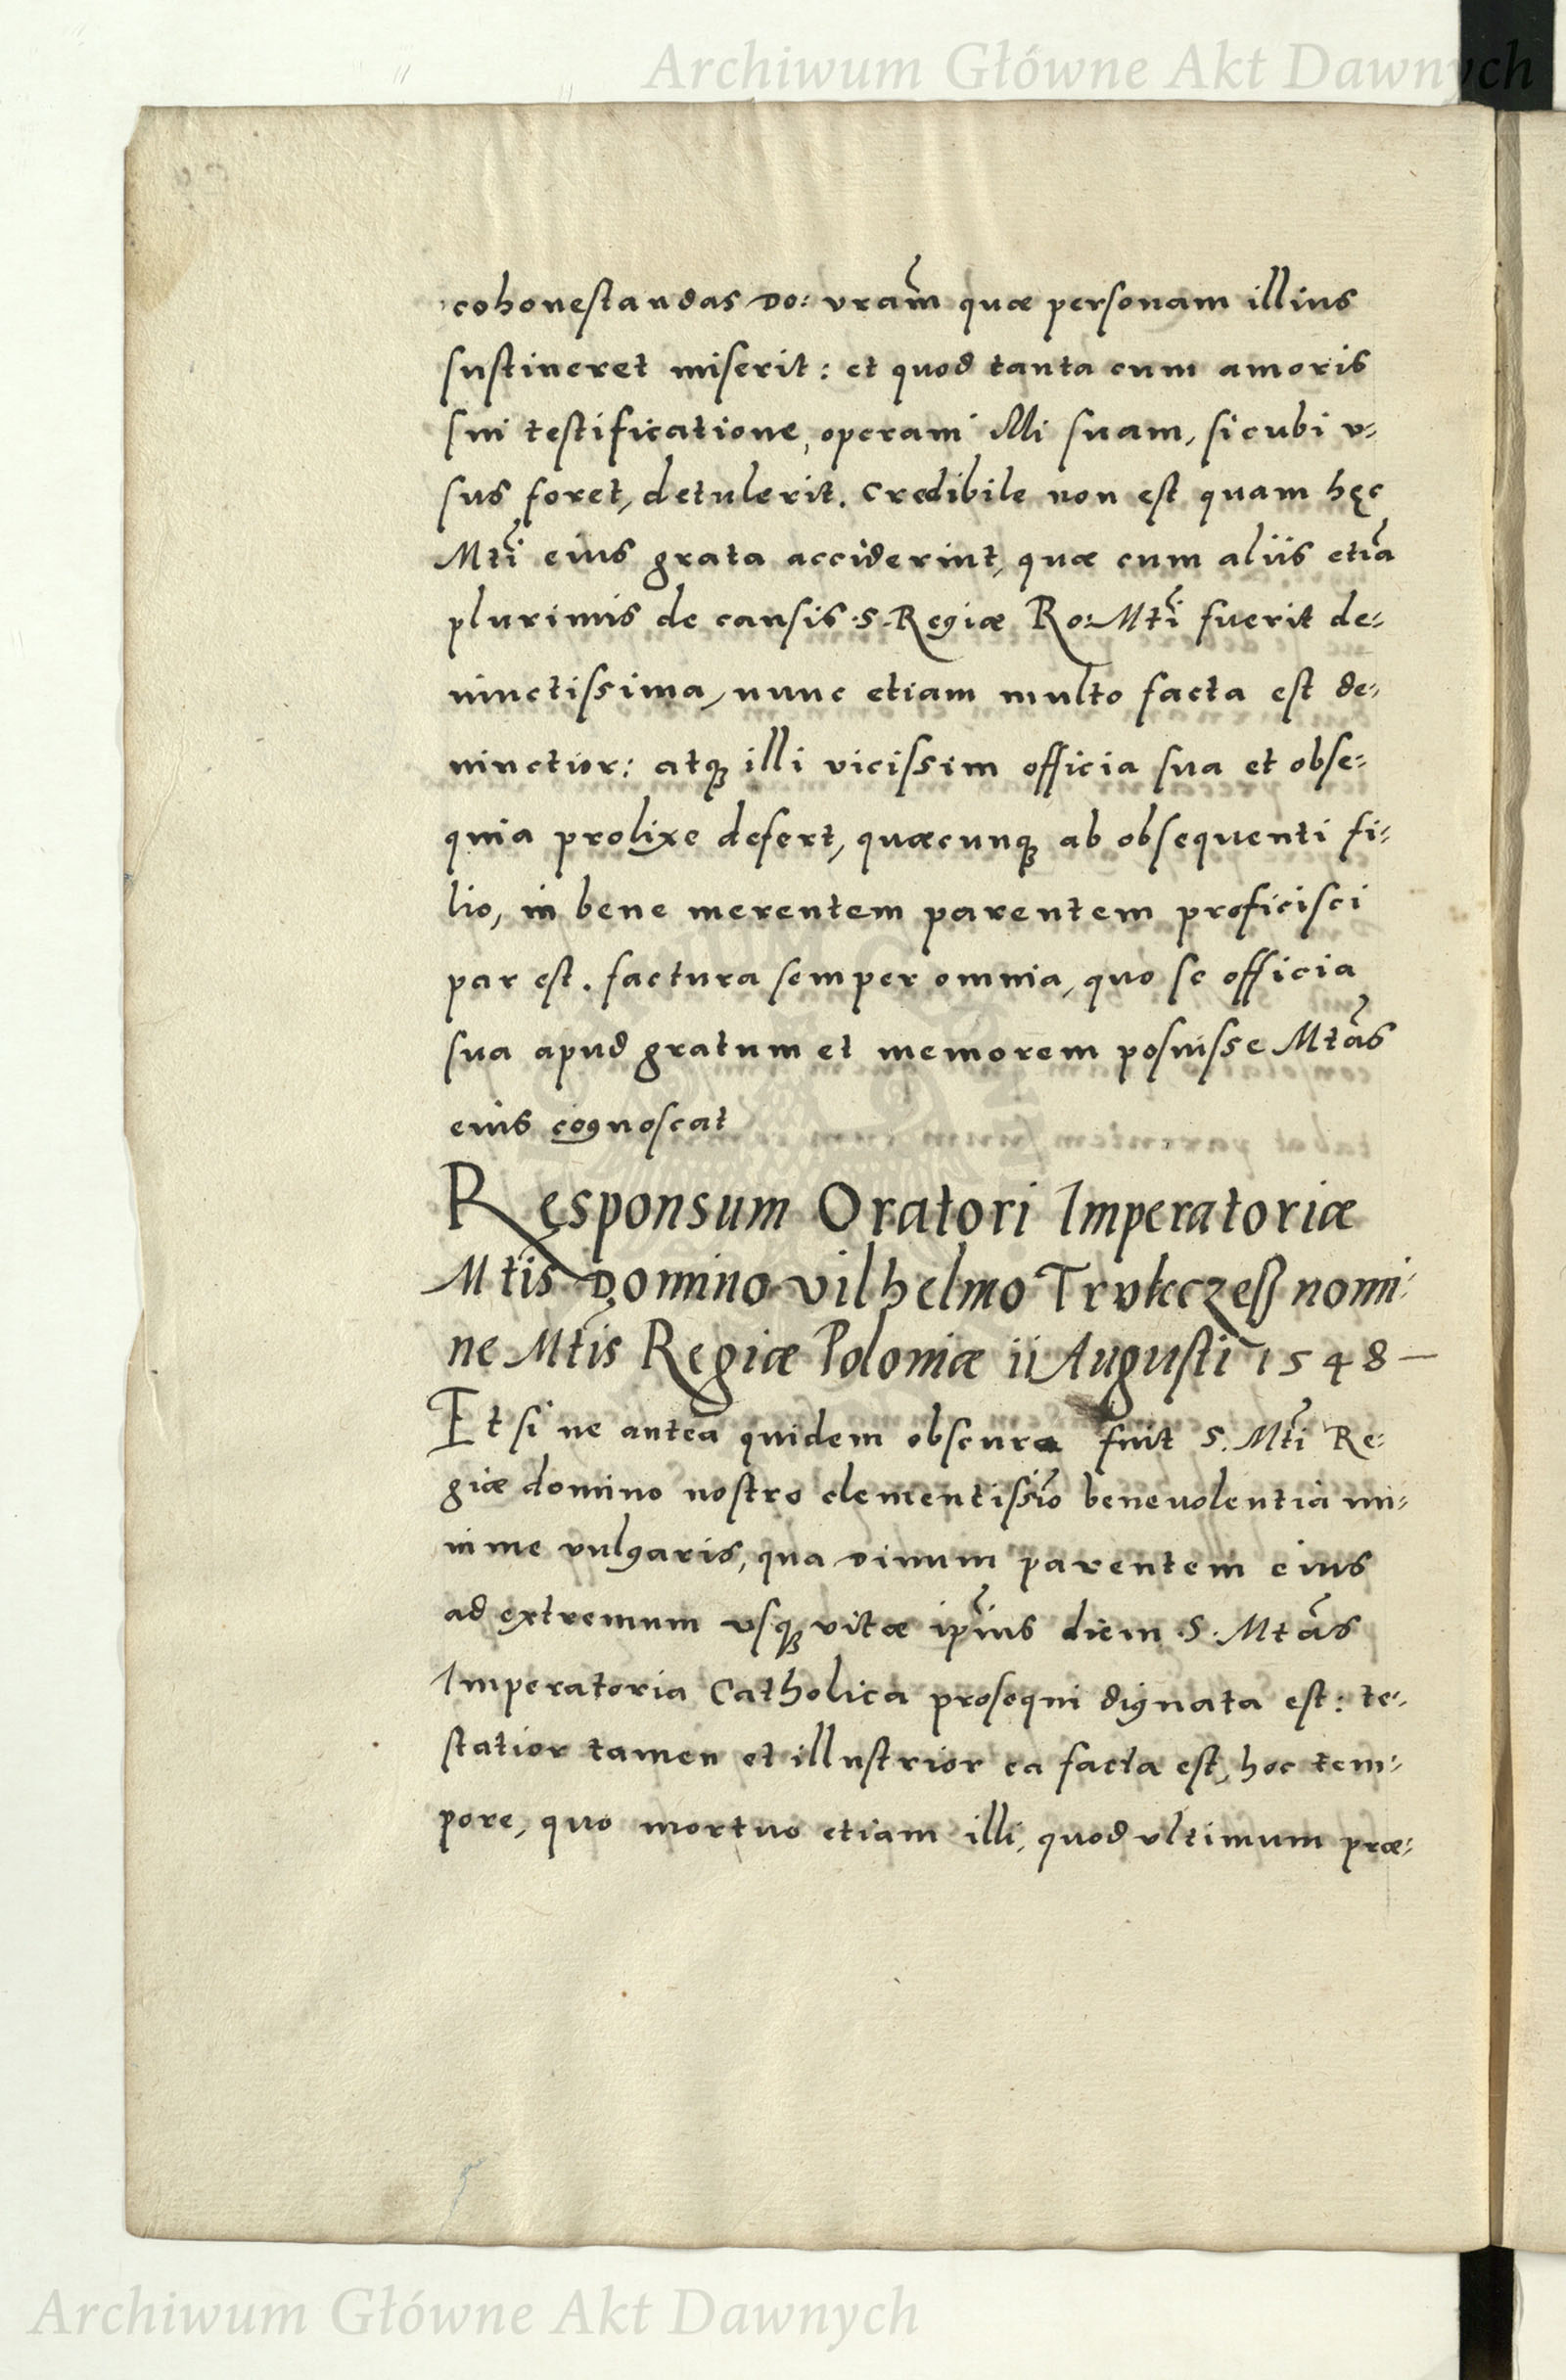 Archiwum Główne Akt Dawnych
cohonestandas Do: vram̃ quæ personam illius
sustineret miserit: et quod tanta cum amoris
sui testificatione, operam Illi suam, sicubi v=
sus foret, detulerit. Credibile non est quam hęc
Mti eius grata acciderint, quæ cum aliis etiã
plurimis de causis .S. Regiæ Ro: Mti fuerit de=
uinctissima, nunc etiam multo facta est de=
uinctior: atq illi vicissim officia sua et obse=
quia prolixe defert, quæcunq ab obsequenti fi=
lio, in bene merentem parentem proficisci
par est. factura semper omnia, quo se officia
sua apud gratum et memorem posuisse Mtãs
eius cognoscat
Responsum Oratori Imperatoriæ
Mtis Domino Vilhelmo Trukczeß nomi=
ne Mtis Regiæ Poloniæ ii Augusti 1548 —
Et si ne antea quidem obscura fuit S. Mti Re=
giæ domino nostro clementissĩo beneuolentia mi=
nime vulgaris, qua Diuum parentem eius
ad extremum vsq vitæ ip̃ius diem .S. Mtãs
Imperatoria Catholica prosequi dignata est: te=
statior tamen et illustrior ea facta est, hoc tem=
pore, quo mortuo etiam illi, quod vltimum præ=
Archiwum Główne Akt Dawnych